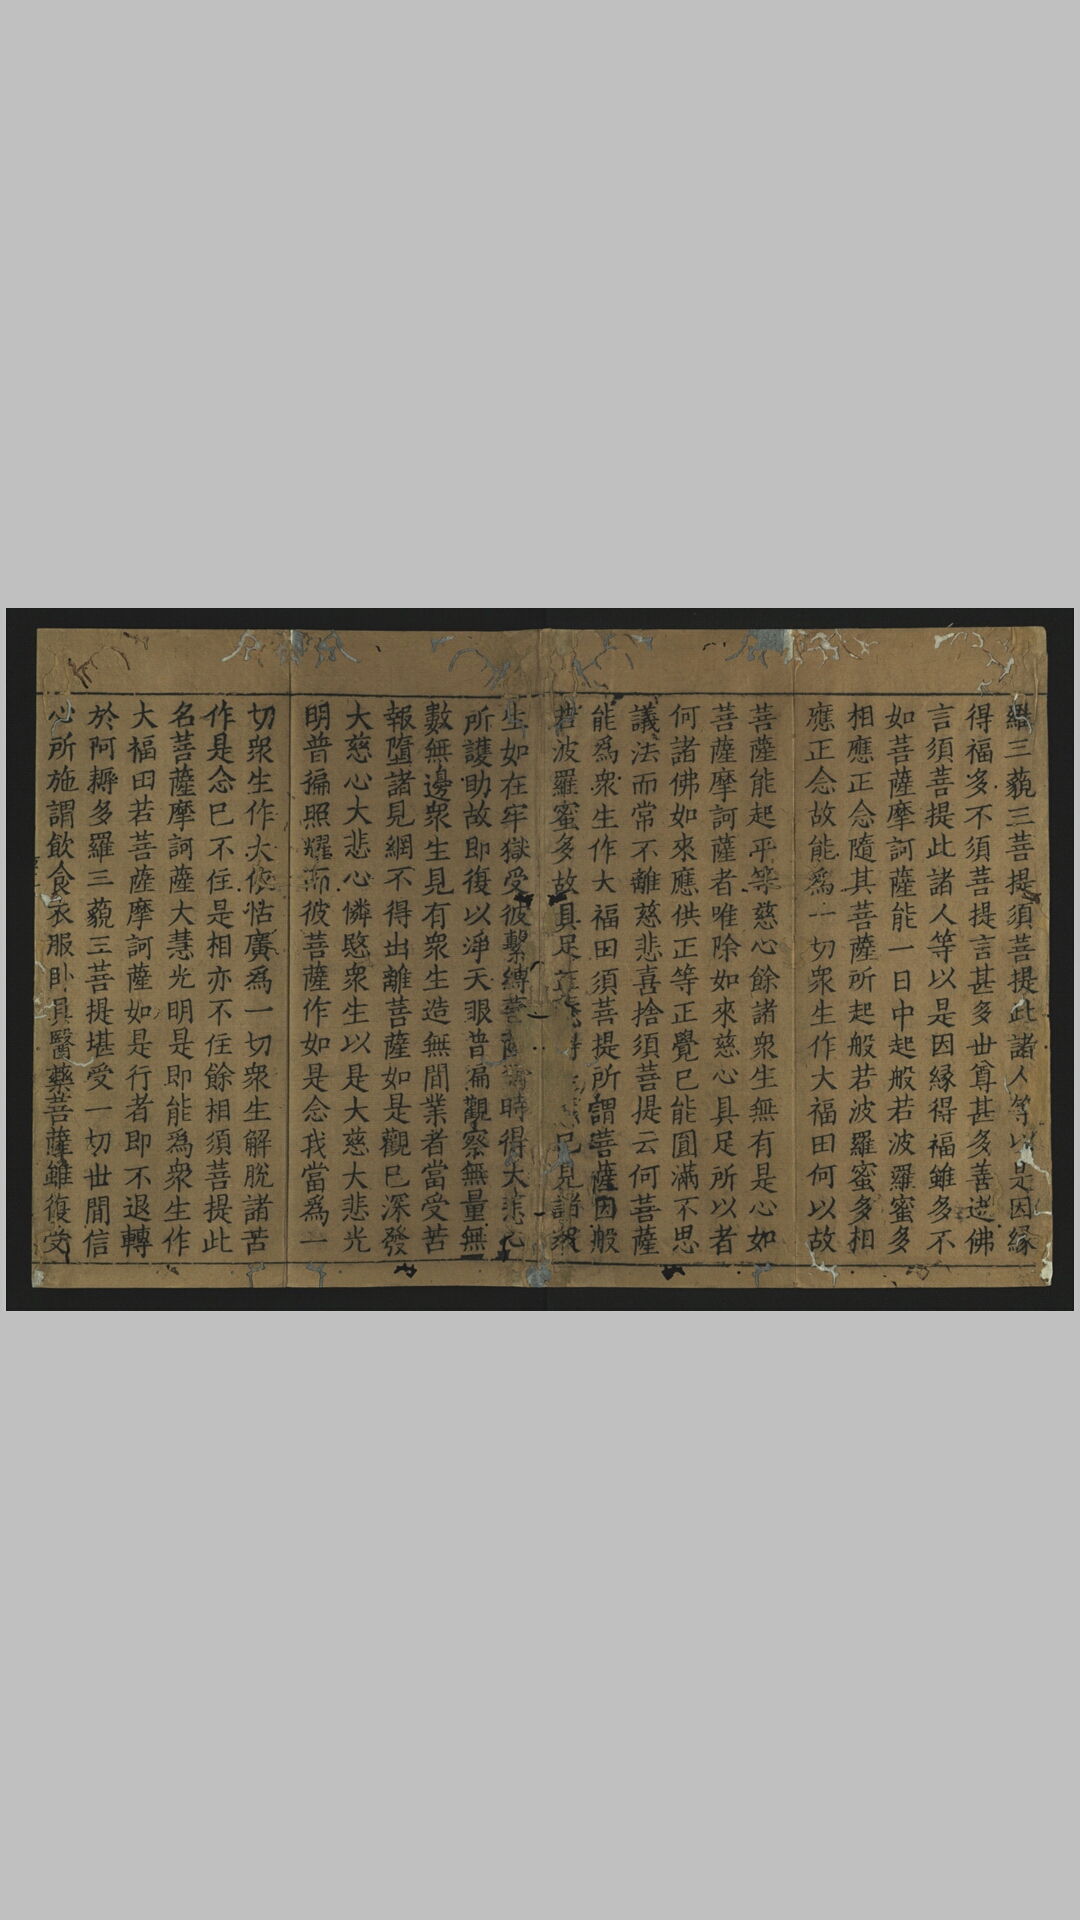 三藐三菩提須菩提此諸人等以是因緣
得福多不須菩提言甚多世尊甚多善逝佛
言須菩提此諸人等以是因緣得福雖多不
如菩薩摩訶薩能一日中起般若波羅蜜多
相應正念隨其菩薩所起般若波羅蜜多相
應正念故能爲一切衆生作大福田何以故
菩薩能起平等慈心餘諸衆生無有是心如
菩薩摩訶薩者唯除如來慈心具足所以者
何諸佛如來應供正等正覺已能圓滿不思
議法而常不離慈悲喜捨須菩提云何菩薩
能爲衆生作大福田須菩提所謂菩薩因般
若波羅蜜多故具足見諸衆
生如在牢獄受彼繫縛菩薩時得大悲心
所護助故即復以淨天眼普徧觀察無量無
數無邊衆生見有衆生造無間業者當受苦
報墮諸見網不得出離菩薩如是觀已深發
大慈心大悲心憐愍衆生以是大慈大悲光
明普徧照耀而彼菩薩作如是念我當爲一
切衆生作大依怙廣爲一切衆生解脫諸苦
作是念已不住是相亦不住餘相須菩提此
名菩薩摩訶薩大慧光明是即能爲衆生作
大福田若菩薩摩訶薩如是行者即不退轉
於阿耨多羅三藐三菩提堪受一切世間信
心所施謂飲食衣服臥具醫藥菩薩雖復受